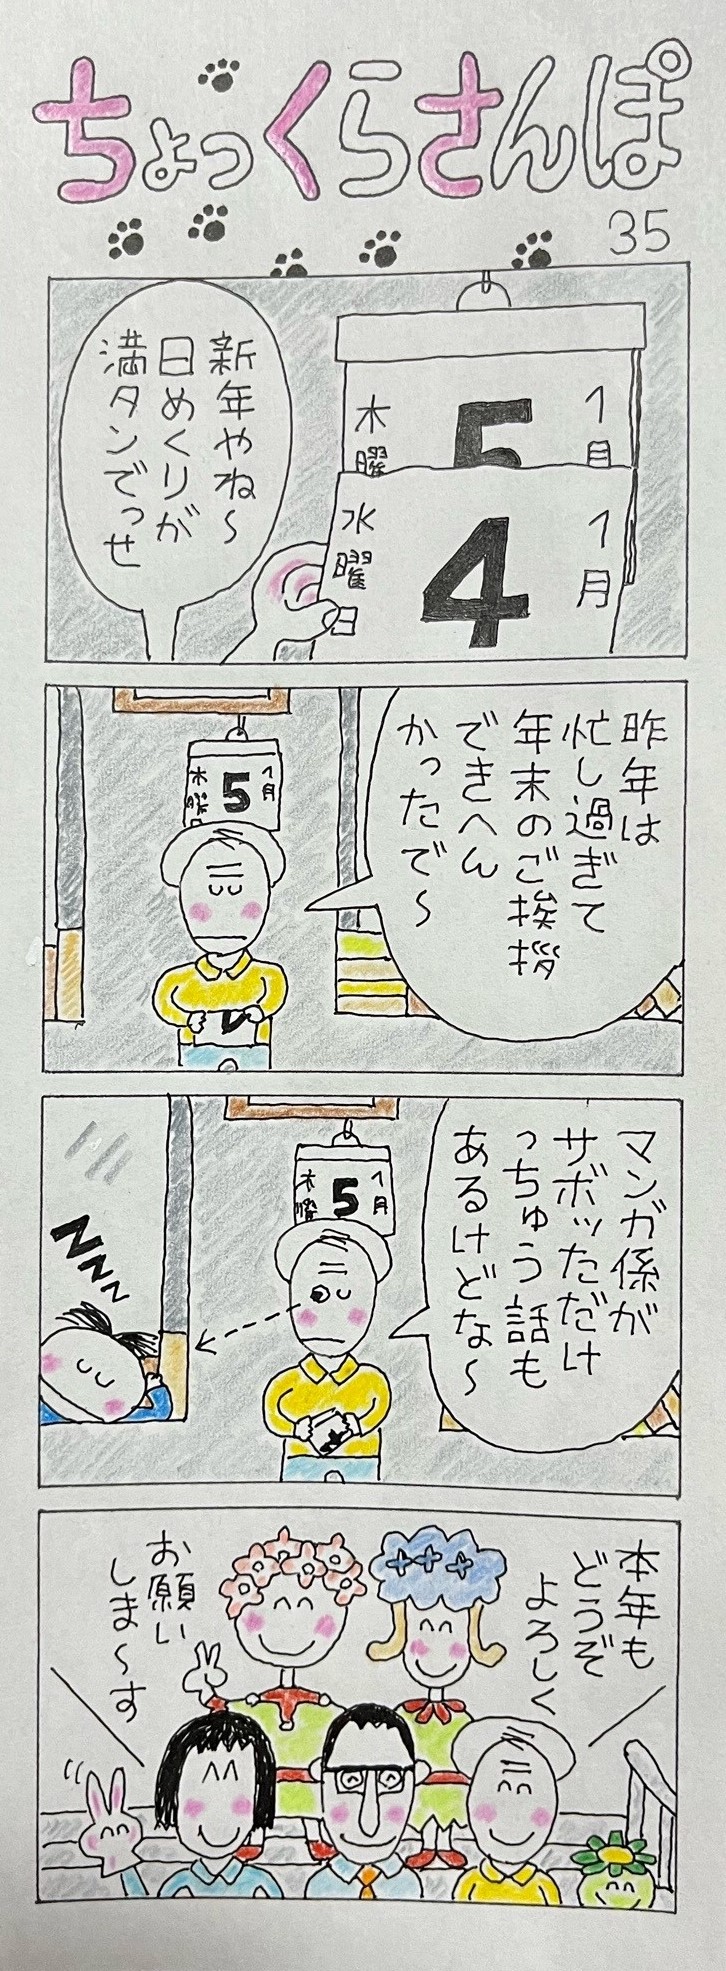 ちょっくらさんぽ
35
新年やね～
日めくりが
満タンでっせ
1月
5
木曜
1月
4
水曜日
昨年は
忙し過ぎて
年末のご挨拶
できへん
かったで～
1月
5
木曜
マンガ係が
サボッただけ
っちゅう話も
あるけどな～
1月
5
木曜
ZZZZ
本年も
どうぞ
よろしく
お願い
しま～す